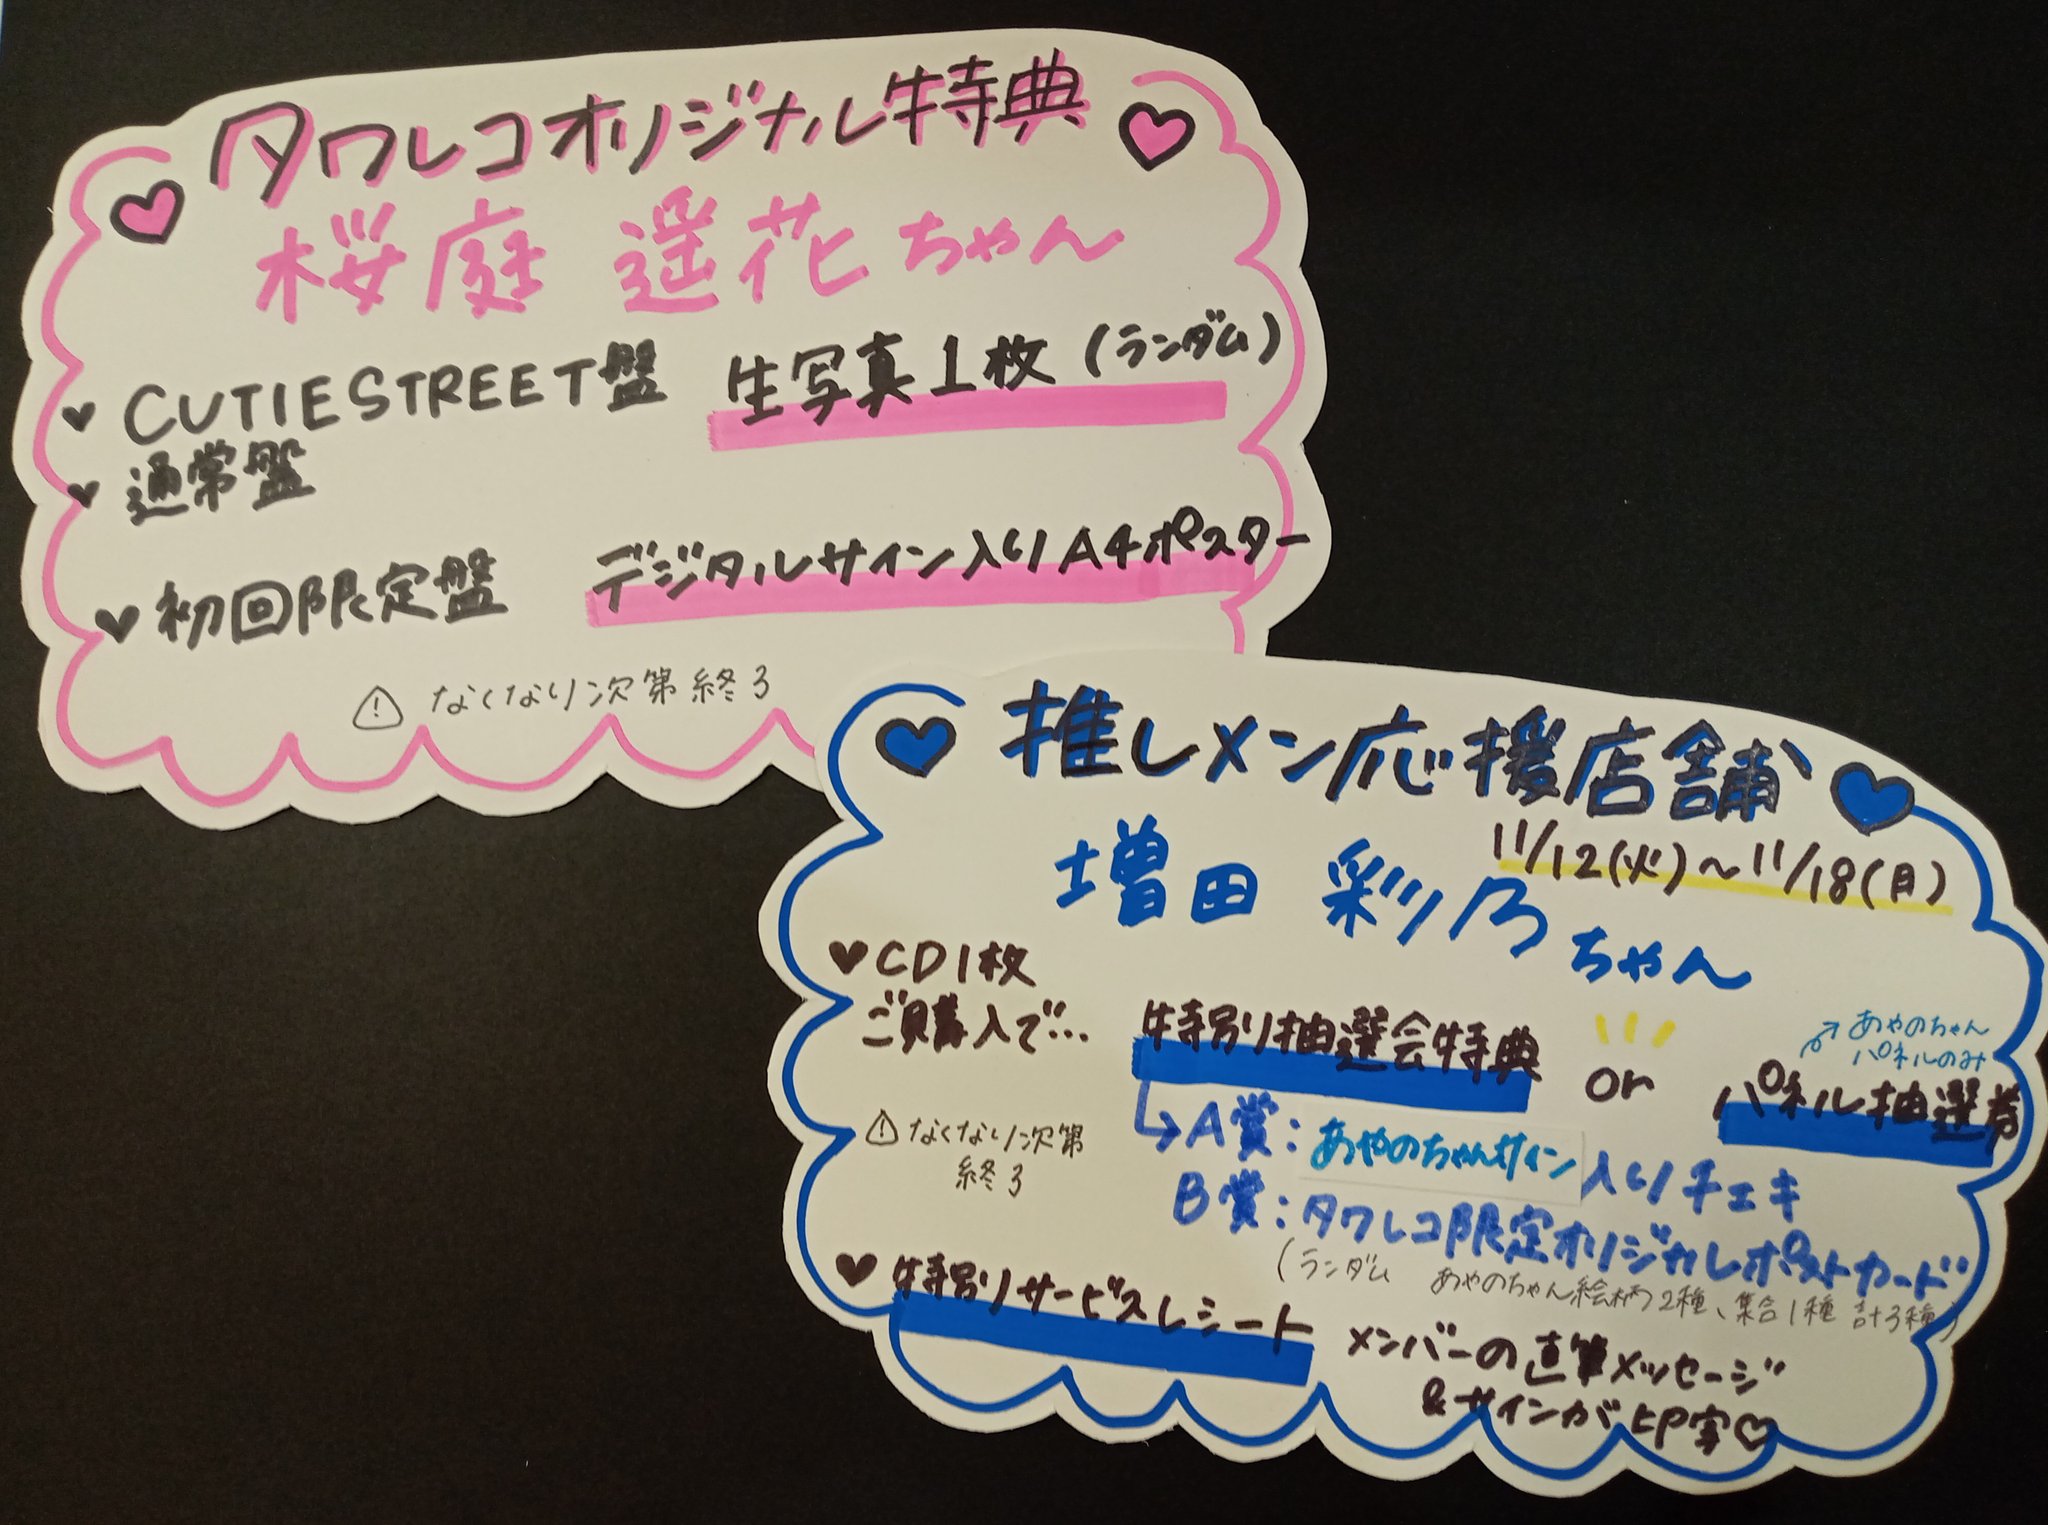 タワレコオリジナル特典
桜庭 遥花ちゃん
CUTIESTREET盤 生写真1枚(ランダム)
通常盤
初回限定盤 デジタルサイン入りA4ポスター
なくなり次第終了
推しメン応援店舗
11/12(火)~11/18(月)
増田 彩乃ちゃん
CD1枚
ご購入で...
特別抽選会特典 or パネル抽選券
あやのちゃん
パネルのみ
A賞:あやのちゃんサイン入りチェキ
なくなり次第
終了
B賞:タワレコ限定オリジナルポストカード
(ランダム あやのちゃん絵柄2種、集合1種 計3種)
特別サービスレシート メンバーの直筆メッセージ
&サインが印字♡